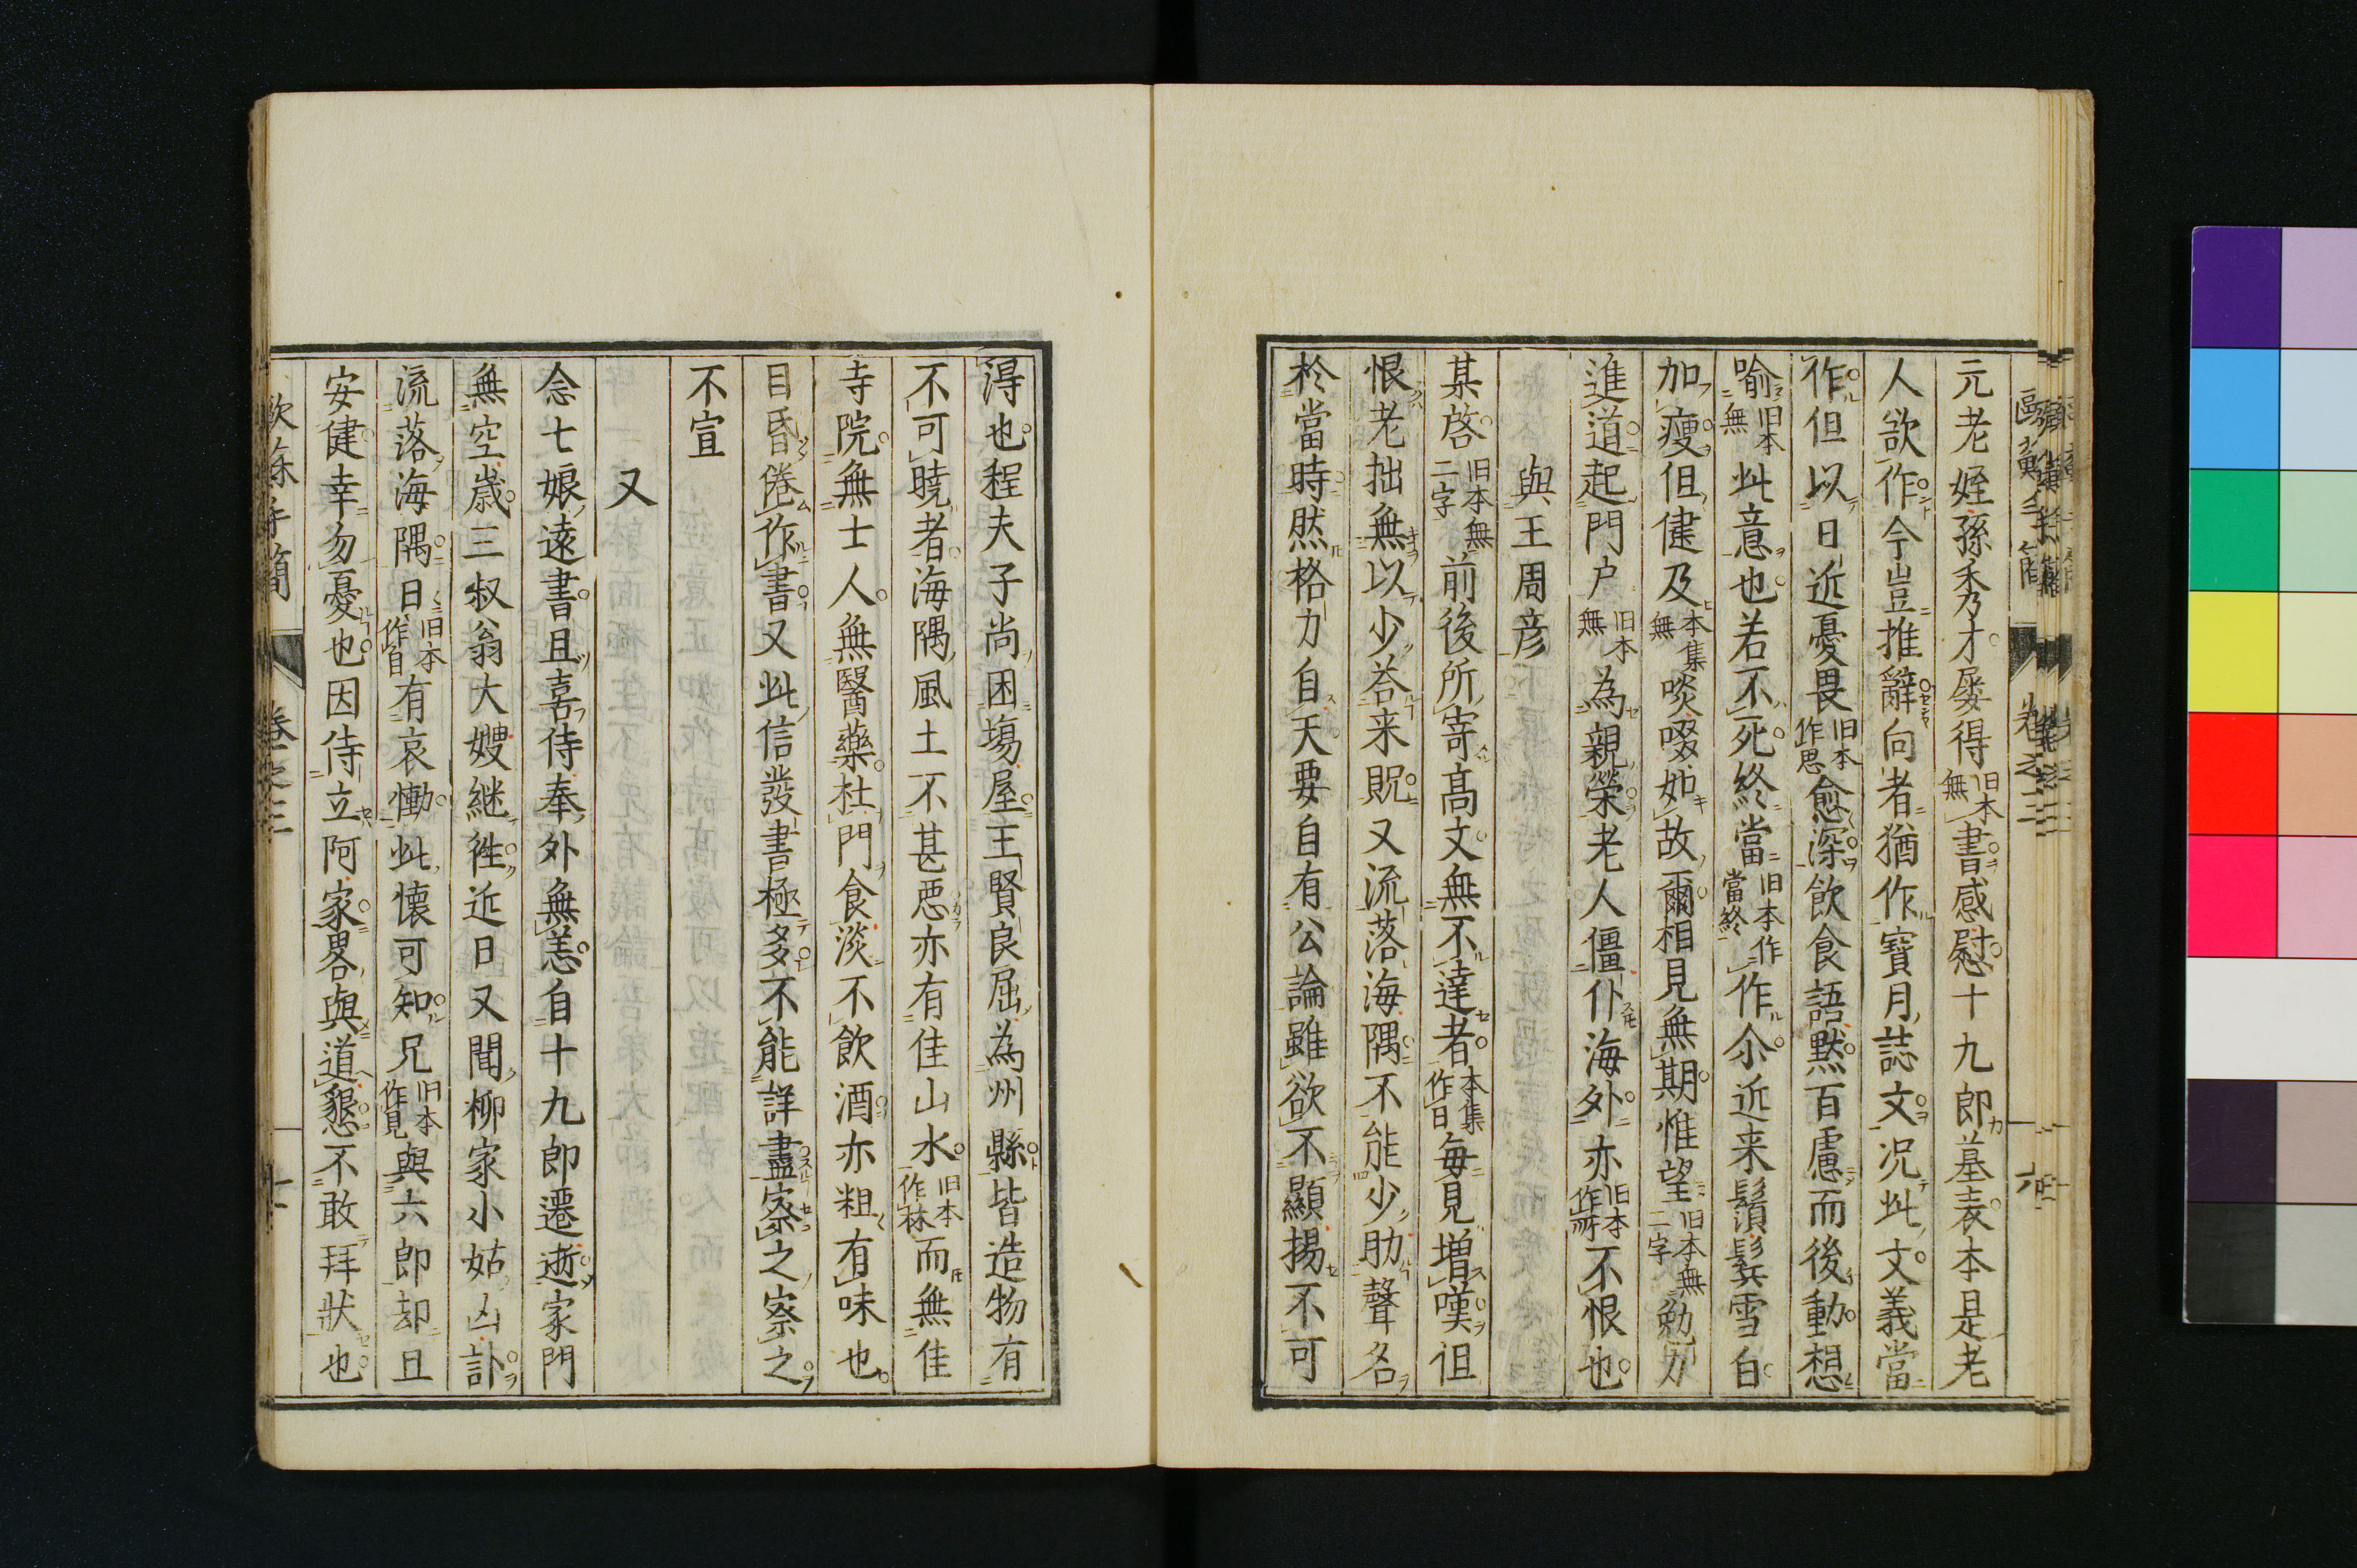 元老姪孫秀才屡得旧本無書感慰十九郎墓表本是老
人欲作今豈推辭向者猶作寳月誌文况此文義當
作但以日近憂畏旧本作思愈深飲食語黙百慮而後動想
喻旧本無此意也若不死終當旧本作當終作尒近来鬚鬂雪白
加瘦但健及本集無啖啜如故爾相見無期惟望旧本無二字勉力
進道起門户旧本無為親榮老人僵仆海外亦旧本作所不恨也
與王周彦
某啓旧本無二字前後所寄髙文無不達者本集作日毎見増嘆但
恨老拙無以少荅来貺又流落海隅不能少助聲名
於當時然格力自天要自有公論雖欲不顯揚不可
淂也程夫子尚困塲屋王賢良屈為州縣皆造物有
不可曉者海隅風土不甚悪亦有佳山水旧本作林而無佳
寺院無士人無醫藥杜門食淡不飲酒亦粗有味也
目昏倦作書又此信發書極多不能詳盡察之察之
不宣
又
念七娘遠書且喜侍奉外無恙自十九郎遷逝家門
無空歳三叔翁大嫂継徃近日又聞柳家小姑凶訃
流落海隅日旧本作自有哀慟此懐可知兄旧本作見與六郎却且
安健幸勿憂也因侍立阿家畧與道懇不敢拜狀也
卷之三